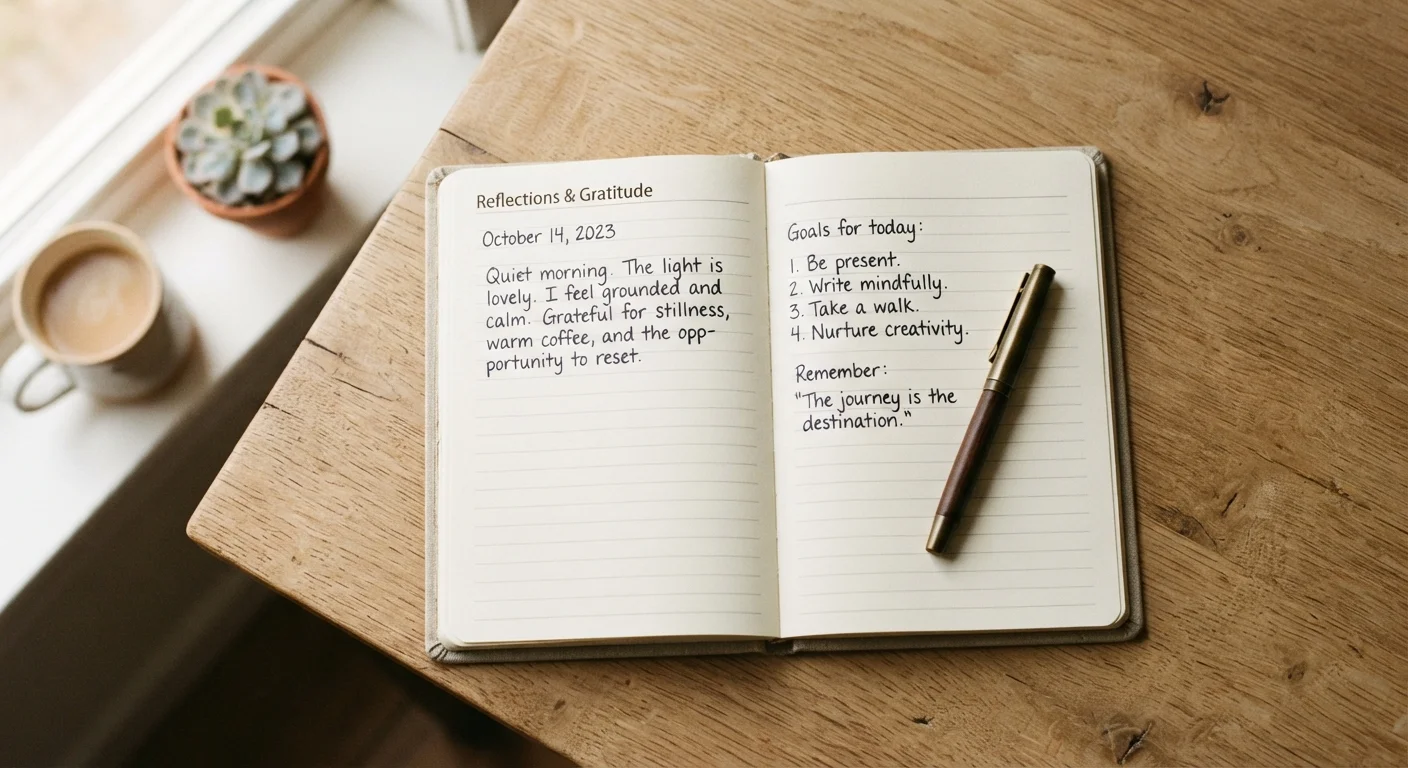 Reflections & Gratitude
October 14, 2023
Quiet morning. The light is
lovely. I feel grounded and
calm. Grateful for stillness,
warm coffee, and the opp-
portunity to reset.
Goals for today:
1. Be present.
2. Write mindfully.
3. Take a walk.
4. Nurture creativity.
Remember:
"The journey is the
destination."